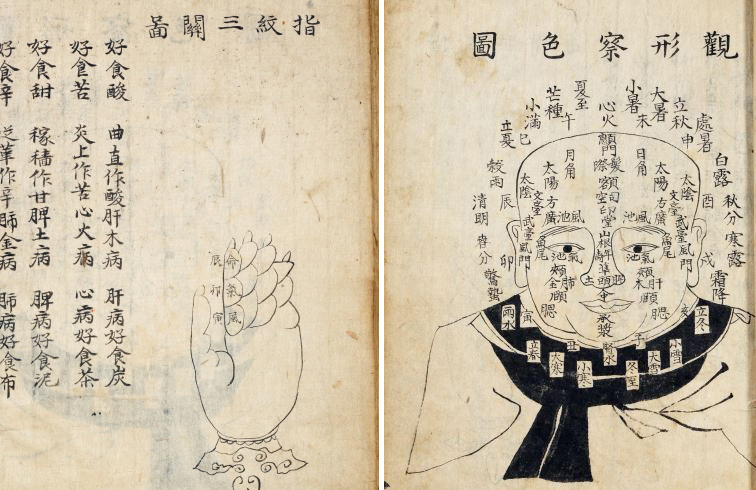 觀形察色圖
處暑
立秋
申
大暑
小暑
未
心火
夏至
午
芒種
小滿
巳
立夏
穀雨
辰
清明
春分
卯
驚蟄
寅
雨水
立春
丑
大寒
小寒
腎水
子
冬至
大雪
小雪
立冬
霜降
戌
寒露
秋分
酉
白露
太陰
太陽
日角
月角
太陽
太陰
文臺
武臺
風門
方廣
魚尾
風池
氣池
印堂
山根
準頭
承漿
方廣
文臺
武臺
風門
魚尾
風池
氣池
頰
肝木
頤
腮
頰
肺金
頤
腮
指紋三關啚
好食酸 曲直作酸肝木病 肝病好食炭
好食苦 炎上作苦心火病 心病好食茶
好食甜 稼穡作甘脾土病 脾病好食泥
好食辛 從革作辛肺金病 肺病好食布
辰 命
卯 氣
寅 風